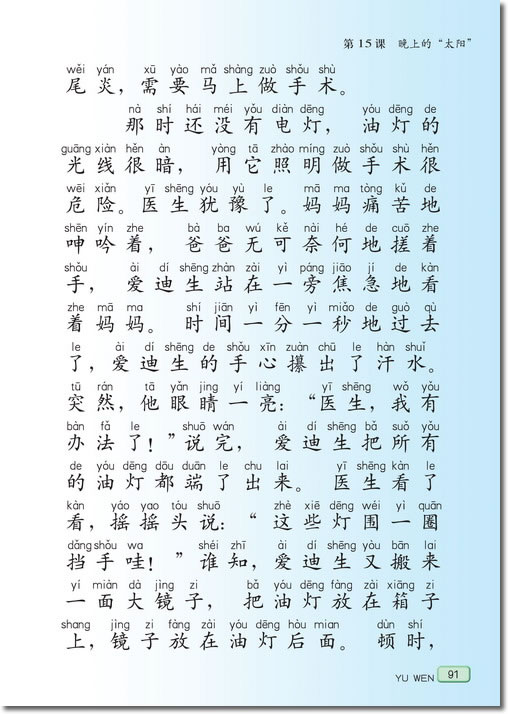 第15课 晚上的“太阳”
wěi yán xū yào mǎ shàng zuò shǒu shù
尾炎，需要马上做手术。
nà shí hái méi yǒu diàn dēng yóu dēng de
那时还没有电灯，油灯的
guāng xiàn hěn àn yòng tā zhào míng zuò shǒu shù hěn
光线很暗，用它照明做手术很
wēi xiǎn yī shēng yóu yù le mā ma tòng kǔ de
危险。医生犹豫了。妈妈痛苦地
shēn yín zhe bà ba wú kě nài hé de cuō zhe
呻吟着，爸爸无可奈何地搓着
shǒu ài dí shēng zhàn zài yì páng jiāo jí de kàn
手，爱迪生站在一旁焦急地看
zhe mā ma shí jiān yì fēn yì miǎo de guò qù
着妈妈。时间一分一秒地过去
le ài dí shēng de shǒu xīn zuàn chū le hàn shuǐ
了，爱迪生的手心攥出了汗水。
tū rán tā yǎn jing yí liàng yī shēng wǒ yǒu
突然，他眼睛一亮：“医生，我有
bàn fǎ le shuō wán ài dí shēng bǎ suǒ yǒu
办法了！”说完，爱迪生把所有
de yóu dēng dōu duān le chu lai yī shēng kàn le
的油灯都端了出来。医生看了
kàn yáo yao tóu shuō zhè xiē dēng wéi yì quān
看，摇摇头说：“这些灯围一圈
dǎng shǒu wa shéi zhī ài dí shēng yòu bān lai
挡手哇！”谁知，爱迪生又搬来
yí miàn dà jìng zi bǎ yóu dēng fàng zài xiāng zi
一面大镜子，把油灯放在箱子
shang jìng zi fàng zài yóu dēng hòu mian dùn shí
上，镜子放在油灯后面。顿时，
YU WEN 91